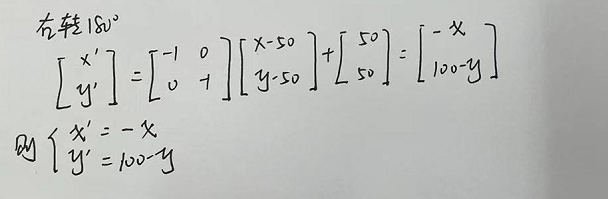 右转180°
[x' y'] = [-1 0 0 -1][x-50 y-50] + [50 50] = [-x 100-y]
则 { x' = -x
y' = 100-y